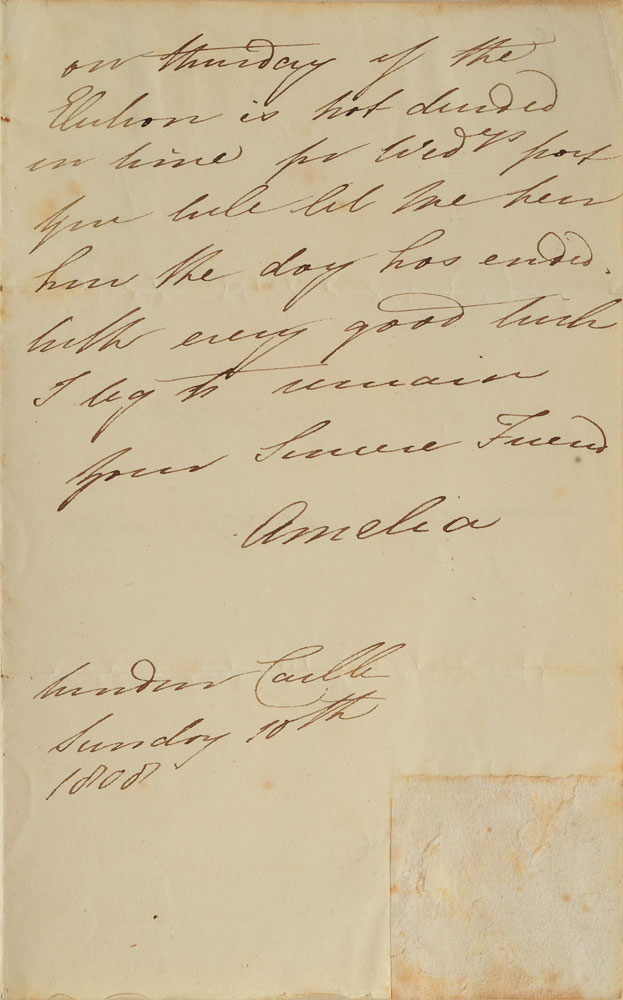 on thursday if the
Election is not decided
in time for Wed.ys post
you will let me hear
how the day has ended.
with every good wish
I beg to remain
your Sincere Friend
Amelia
Windsor Castle
Sunday 10th
1808